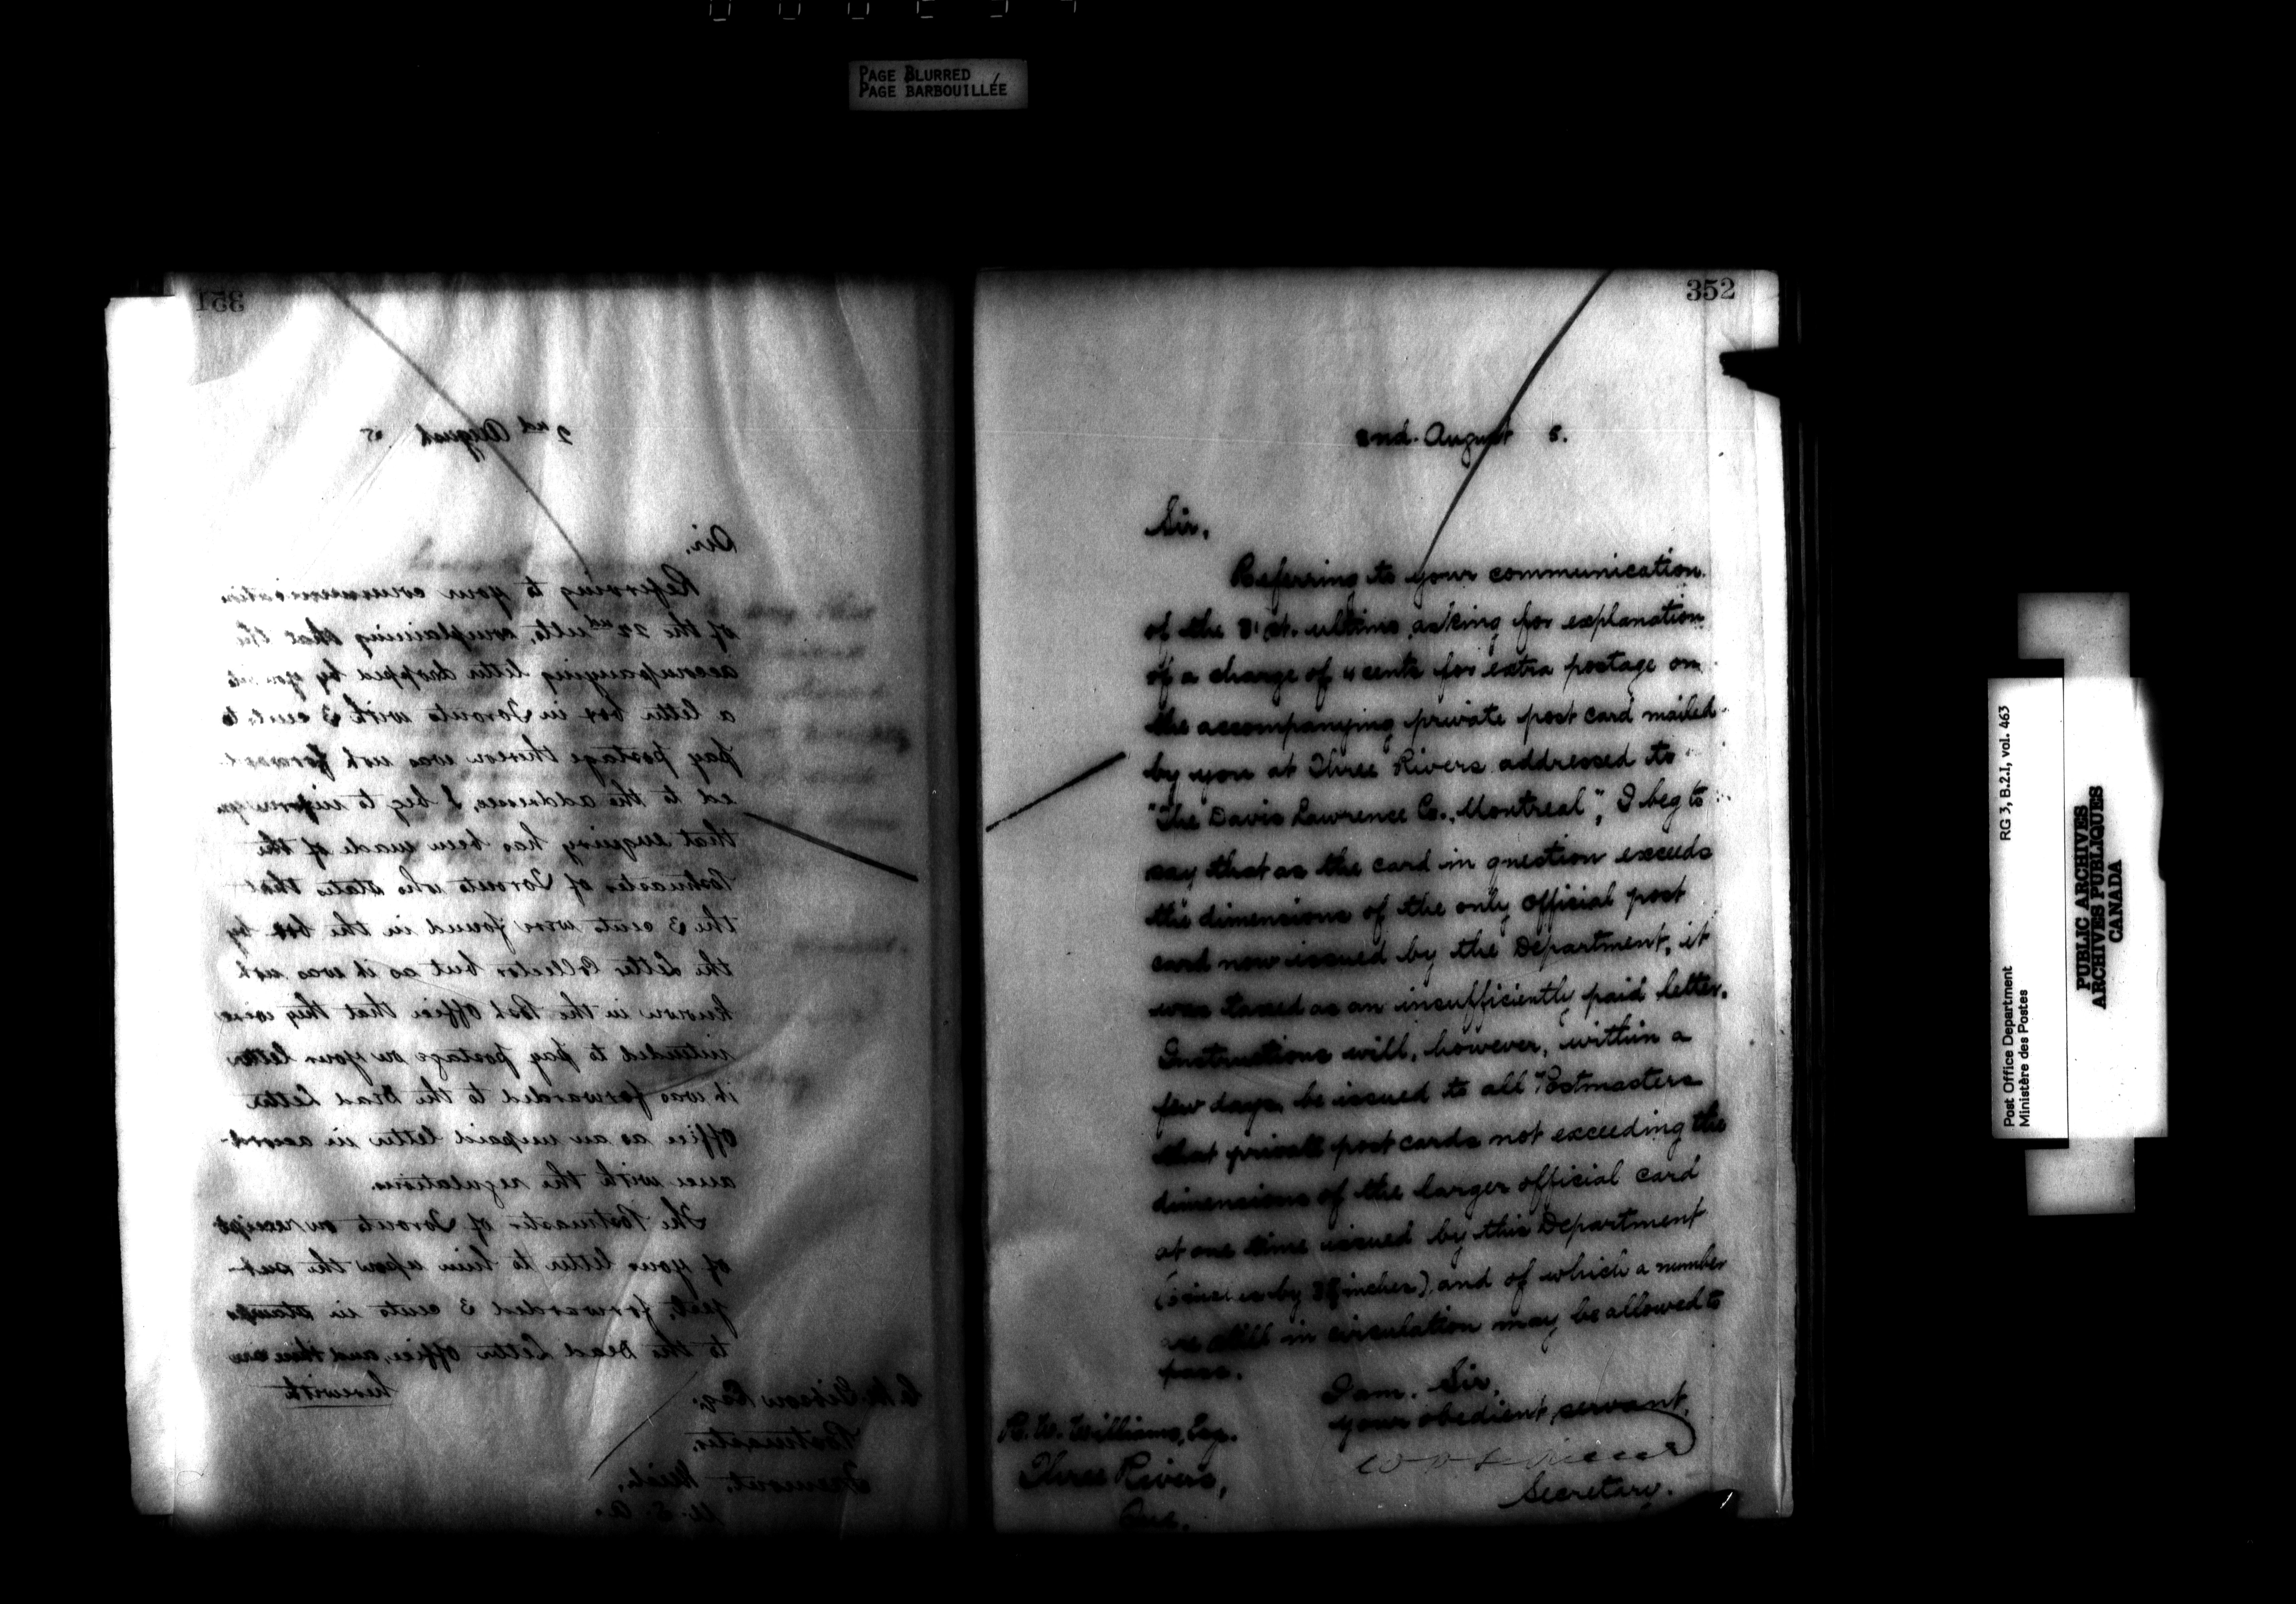 PAGE BLURRED
PAGE BARBOUILLÉE
351
2nd August 5
Sir,
Referring to your communication
of the 22nd ulto, complaining that the
accompanying letter dropped by you into
a letter box in Toronto with 3 cents to
pay postage thereon was not forward-
ed to the addressee, I beg to inform you
that enquiry has been made of the
Postmaster of Toronto who states that
the 3 cents were found in the box by
the Letter Collector but as it was not
known in the Post Office that they were
intended to pay postage on your letter
it was forwarded to the Dead Letter
Office as an unpaid letter in accord-
ance with the regulations.
The Postmaster of Toronto on receipt
of your letter to him upon the sub-
ject, forwarded 3 cents in stamps
to the Dead Letter Office, and these are
herewith
Esq.
Postmaster,
Fremont, Mich,
U.S.A.
352
2nd. August 5.
Sir,
Referring to your communication
of the 31st. ultimo asking for explanation
of a charge of 4 cents for extra postage on
the accompanying private post card mailed
by you at Three Rivers addressed to
"The Davis Lawrence Co., Montreal", I beg to
say that as the card in question exceeds
the dimensions of the only official post
card now issued by the Department, it
was taxed as an insufficiently paid letter.
Instructions will, however, within a
few days be issued to all Postmasters
that private post cards not exceeding the
dimensions of the larger official card
at one time issued by this Department
(6 inches by inches), and of which a number
are still in circulation may be allowed to
pass.
I am. Sir,
your obedient servant,
Secretary.
R. W. Williams, Esq.
Three Rivers,
Que.
Post Office Department RG 3, B.2.I, vol. 463
Ministère des Postes
PUBLIC ARCHIVES
ARCHIVES PUBLIQUES
CANADA